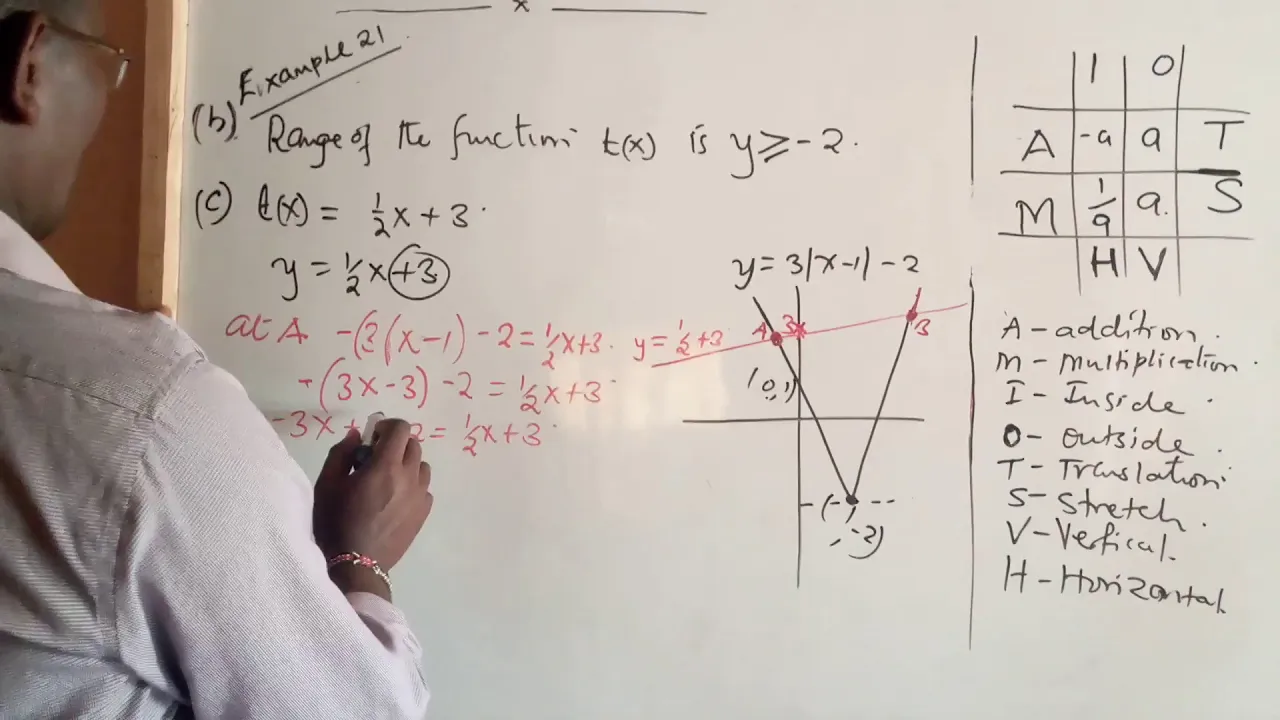 x
Example 21
(b) Range of the function t(x) is y ≥ -2.
(c) t(x) = 1/2x + 3
y = 1/2x +3
at A -(3(x-1) - 2 = 1/2x+3.
-(3x-3) - 2 = 1/2x+3
-3x + 2 = 1/2x+3
y = 3|x-1| - 2
y = 1/2+3
A 3 B
(0,1)
-2)
1 0
A -a a T
M 1/a a. S
H V
A - addition.
M - Multiplication.
I - Inside.
O - outside.
T - Translation.
S - Stretch.
V - Vertical.
H - Horizontal.